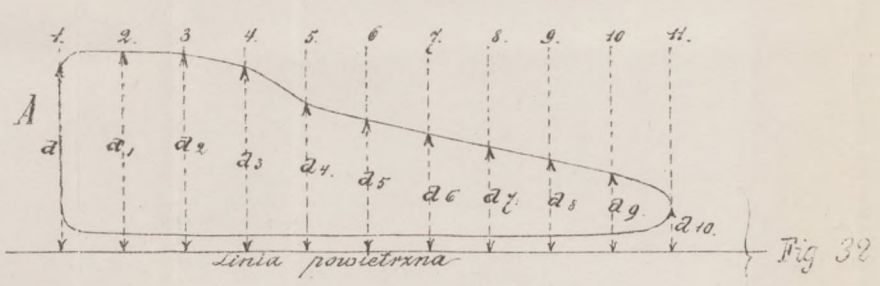 1. 2. 3 4. 5. 6 7. 8. 9. 10 11.
A
a a1 a2 a3 a4. a5 a6 a7. a8 a9. a10.
Linia powietrzna
Fig 32